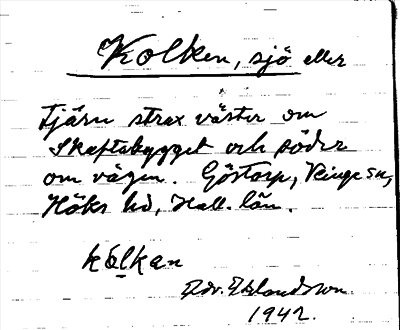 Kolken, sjö eller
tjärn strax väster om
Skaftabygget och söder
om vägen. Göstorp, Ringe sn,
Höks hd, Hall. län.
kålkan
Edv. Erlandsson
1942.